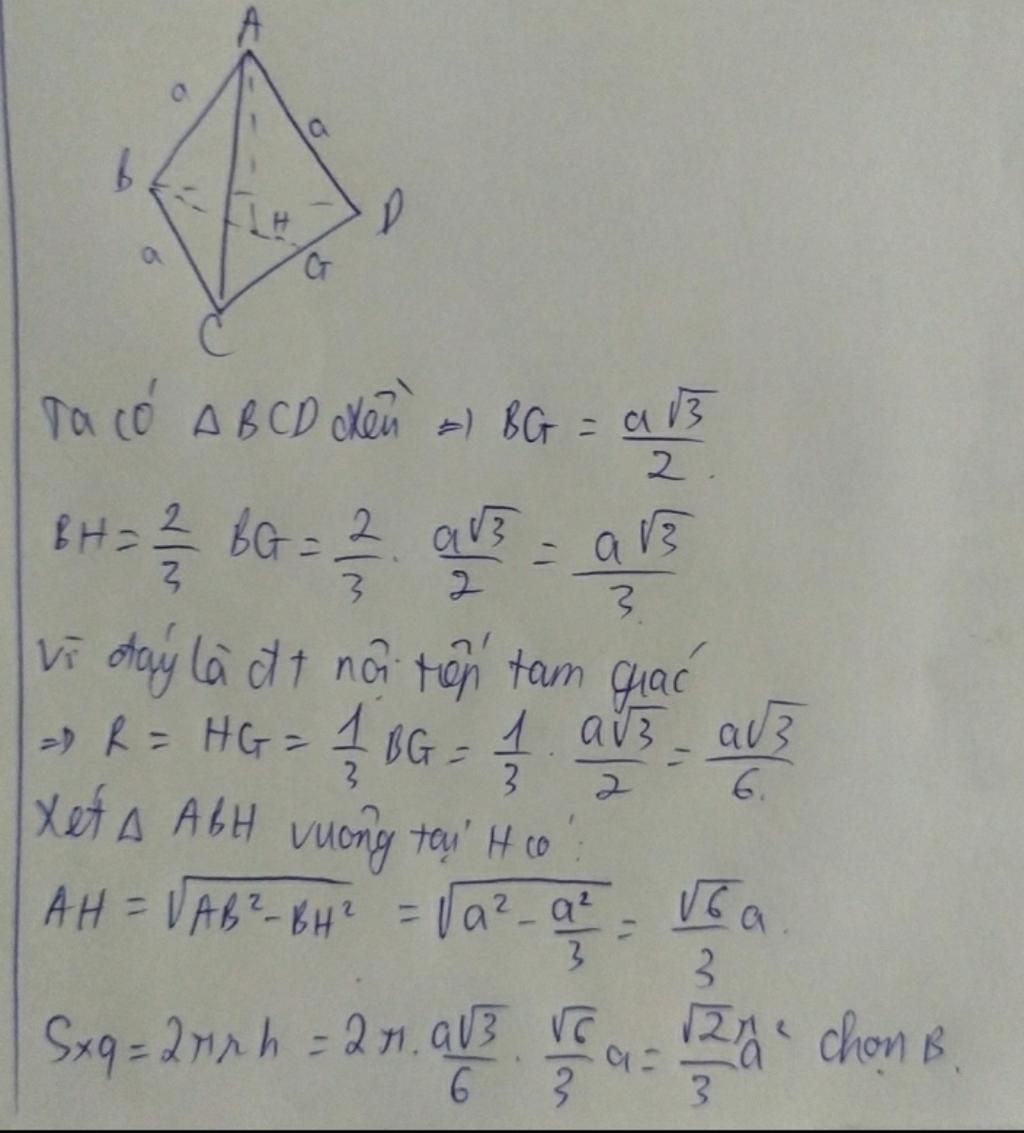 A
a
a
B
H
D
a
G
C
Ta có △BCD đều => BG = a√3/2.
BH = 2/3 BG = 2/3 . a√3/2 = a√3/3.
Vì đáy là đt nội tiếp tam giác
=> R = HG = 1/3 BG = 1/3 . a√3/2 = a√3/6.
Xét △ ABH vuông tại H có:
AH = √(AB² - BH²) = √(a² - a²/3) = √6/3 a.
Sxq = 2πrh = 2π . a√3/6 . √6/3 a = √2π/3 a² chọn B.